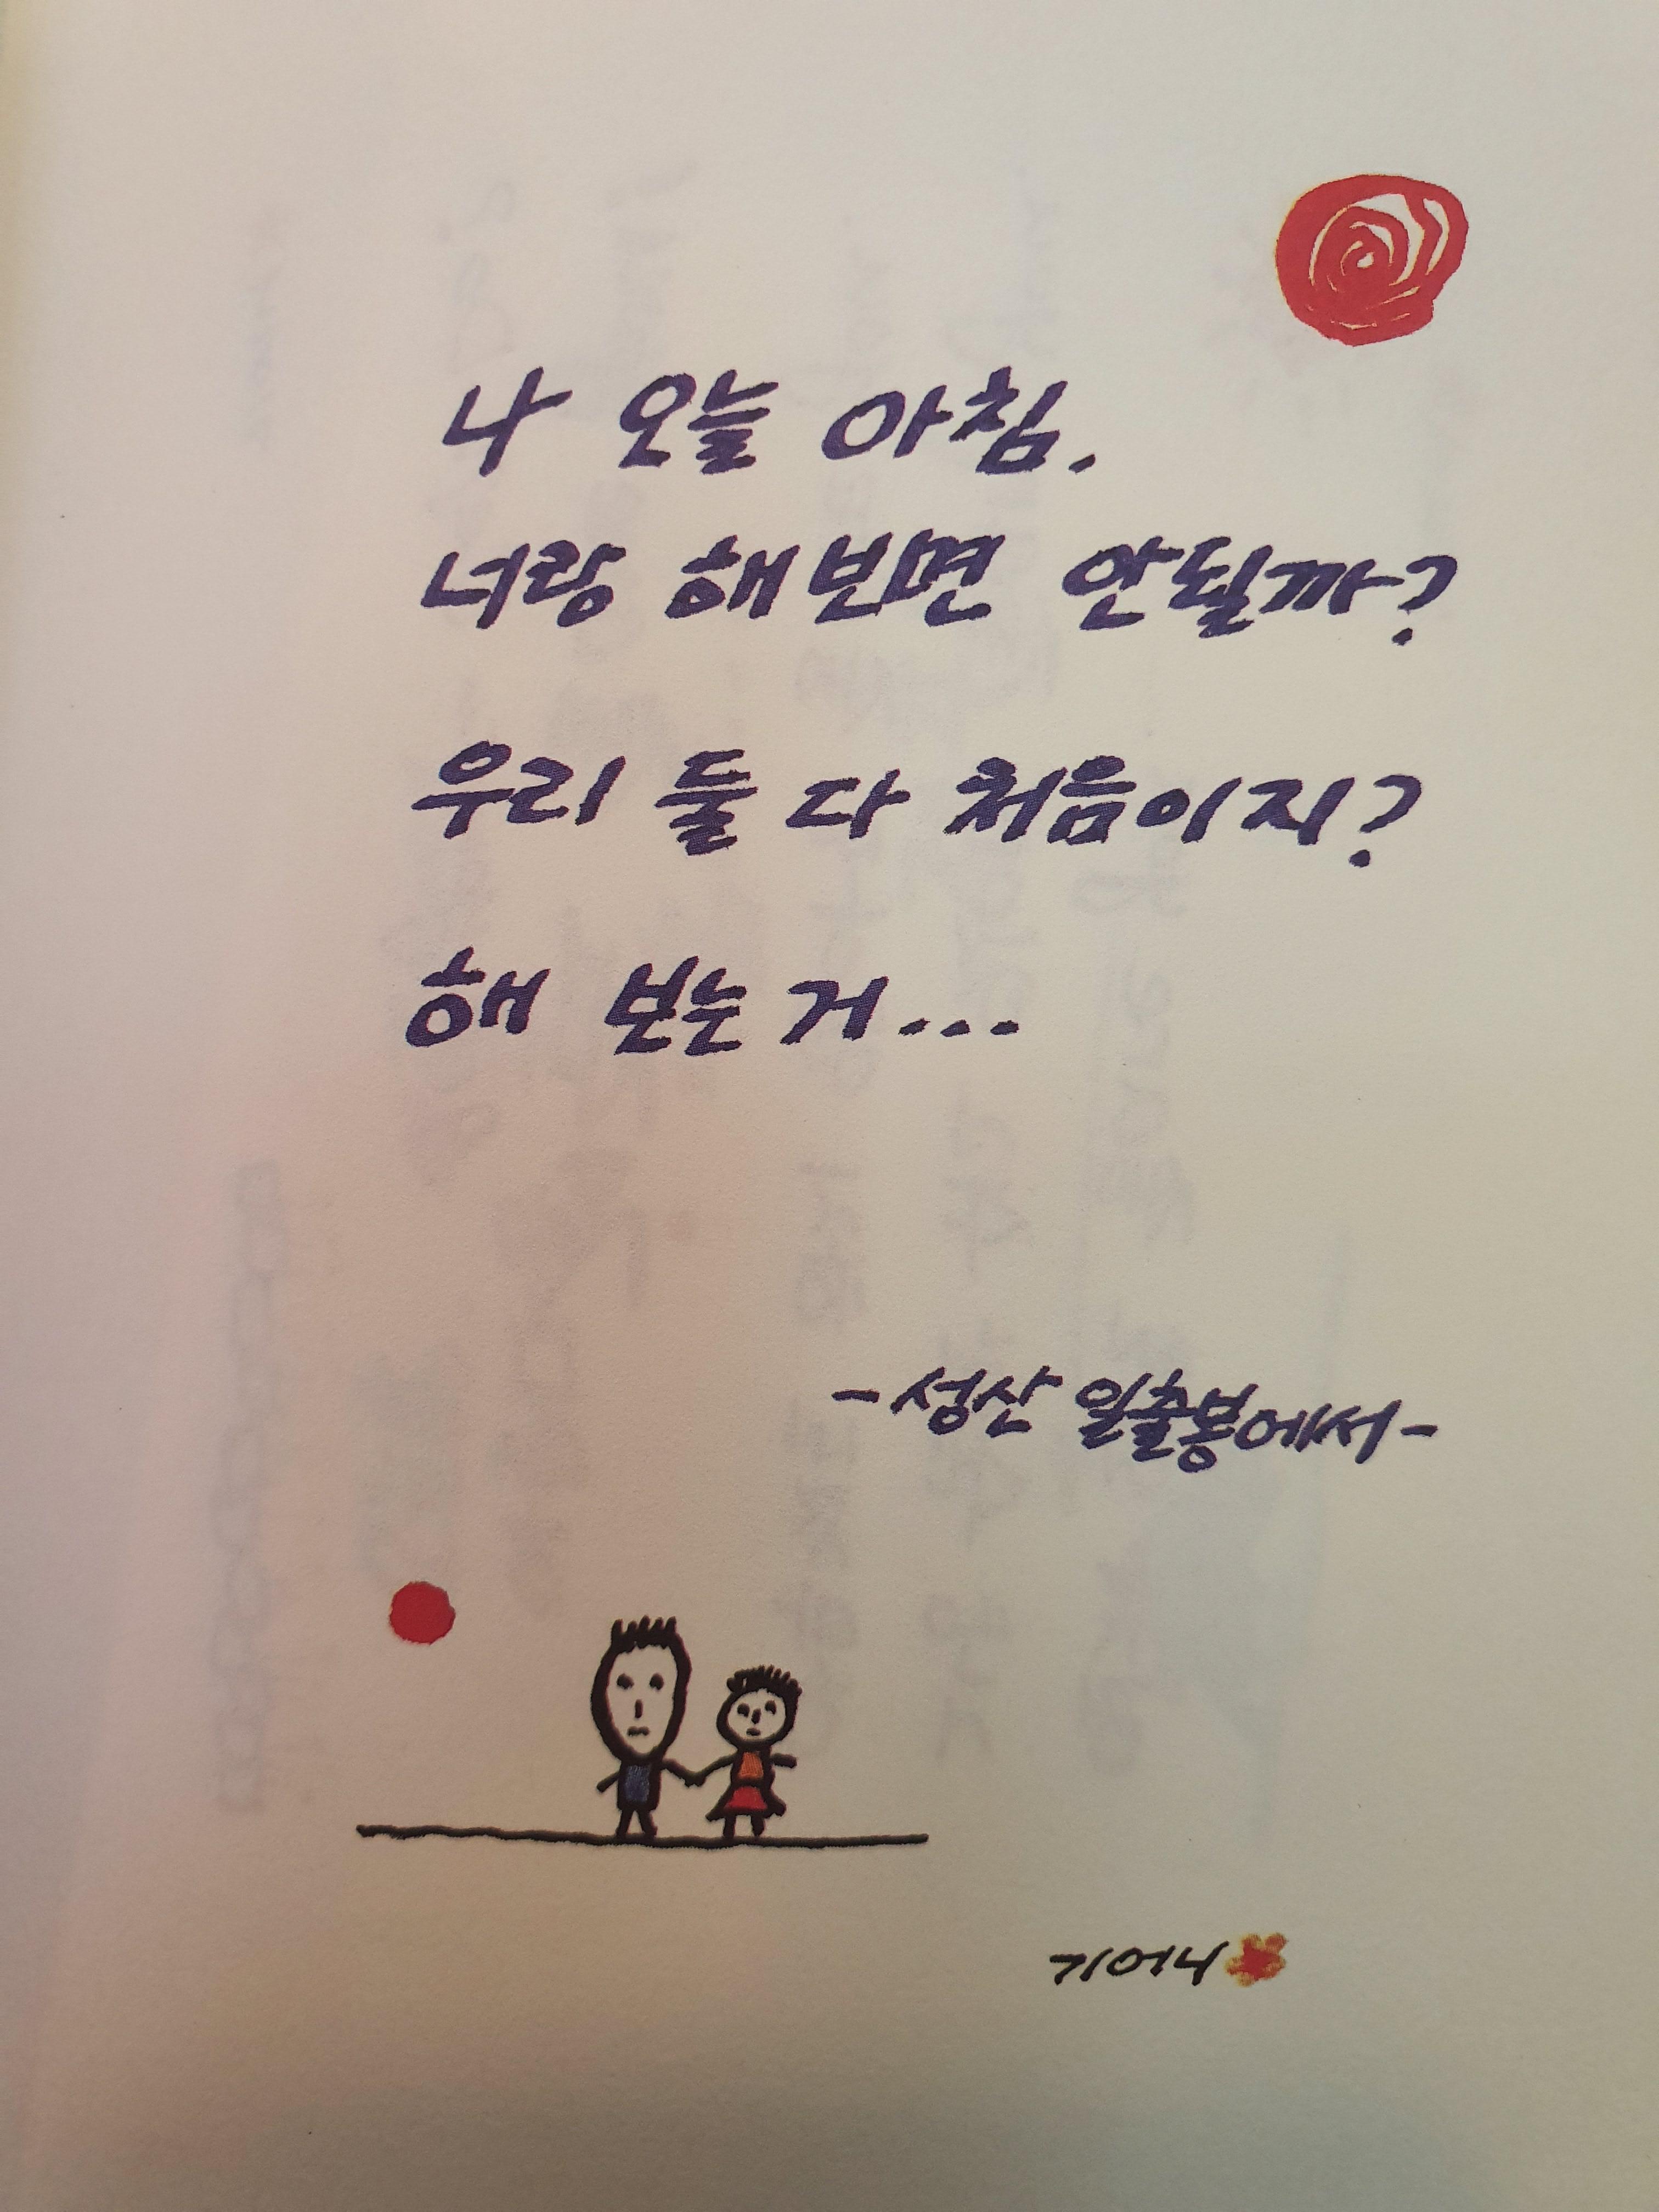 나 오늘 아침.
너랑 해 보면 안될까?
우리 둘 다 처음이지?
해 보는 거...
-성산 일출봉에서-
기어니